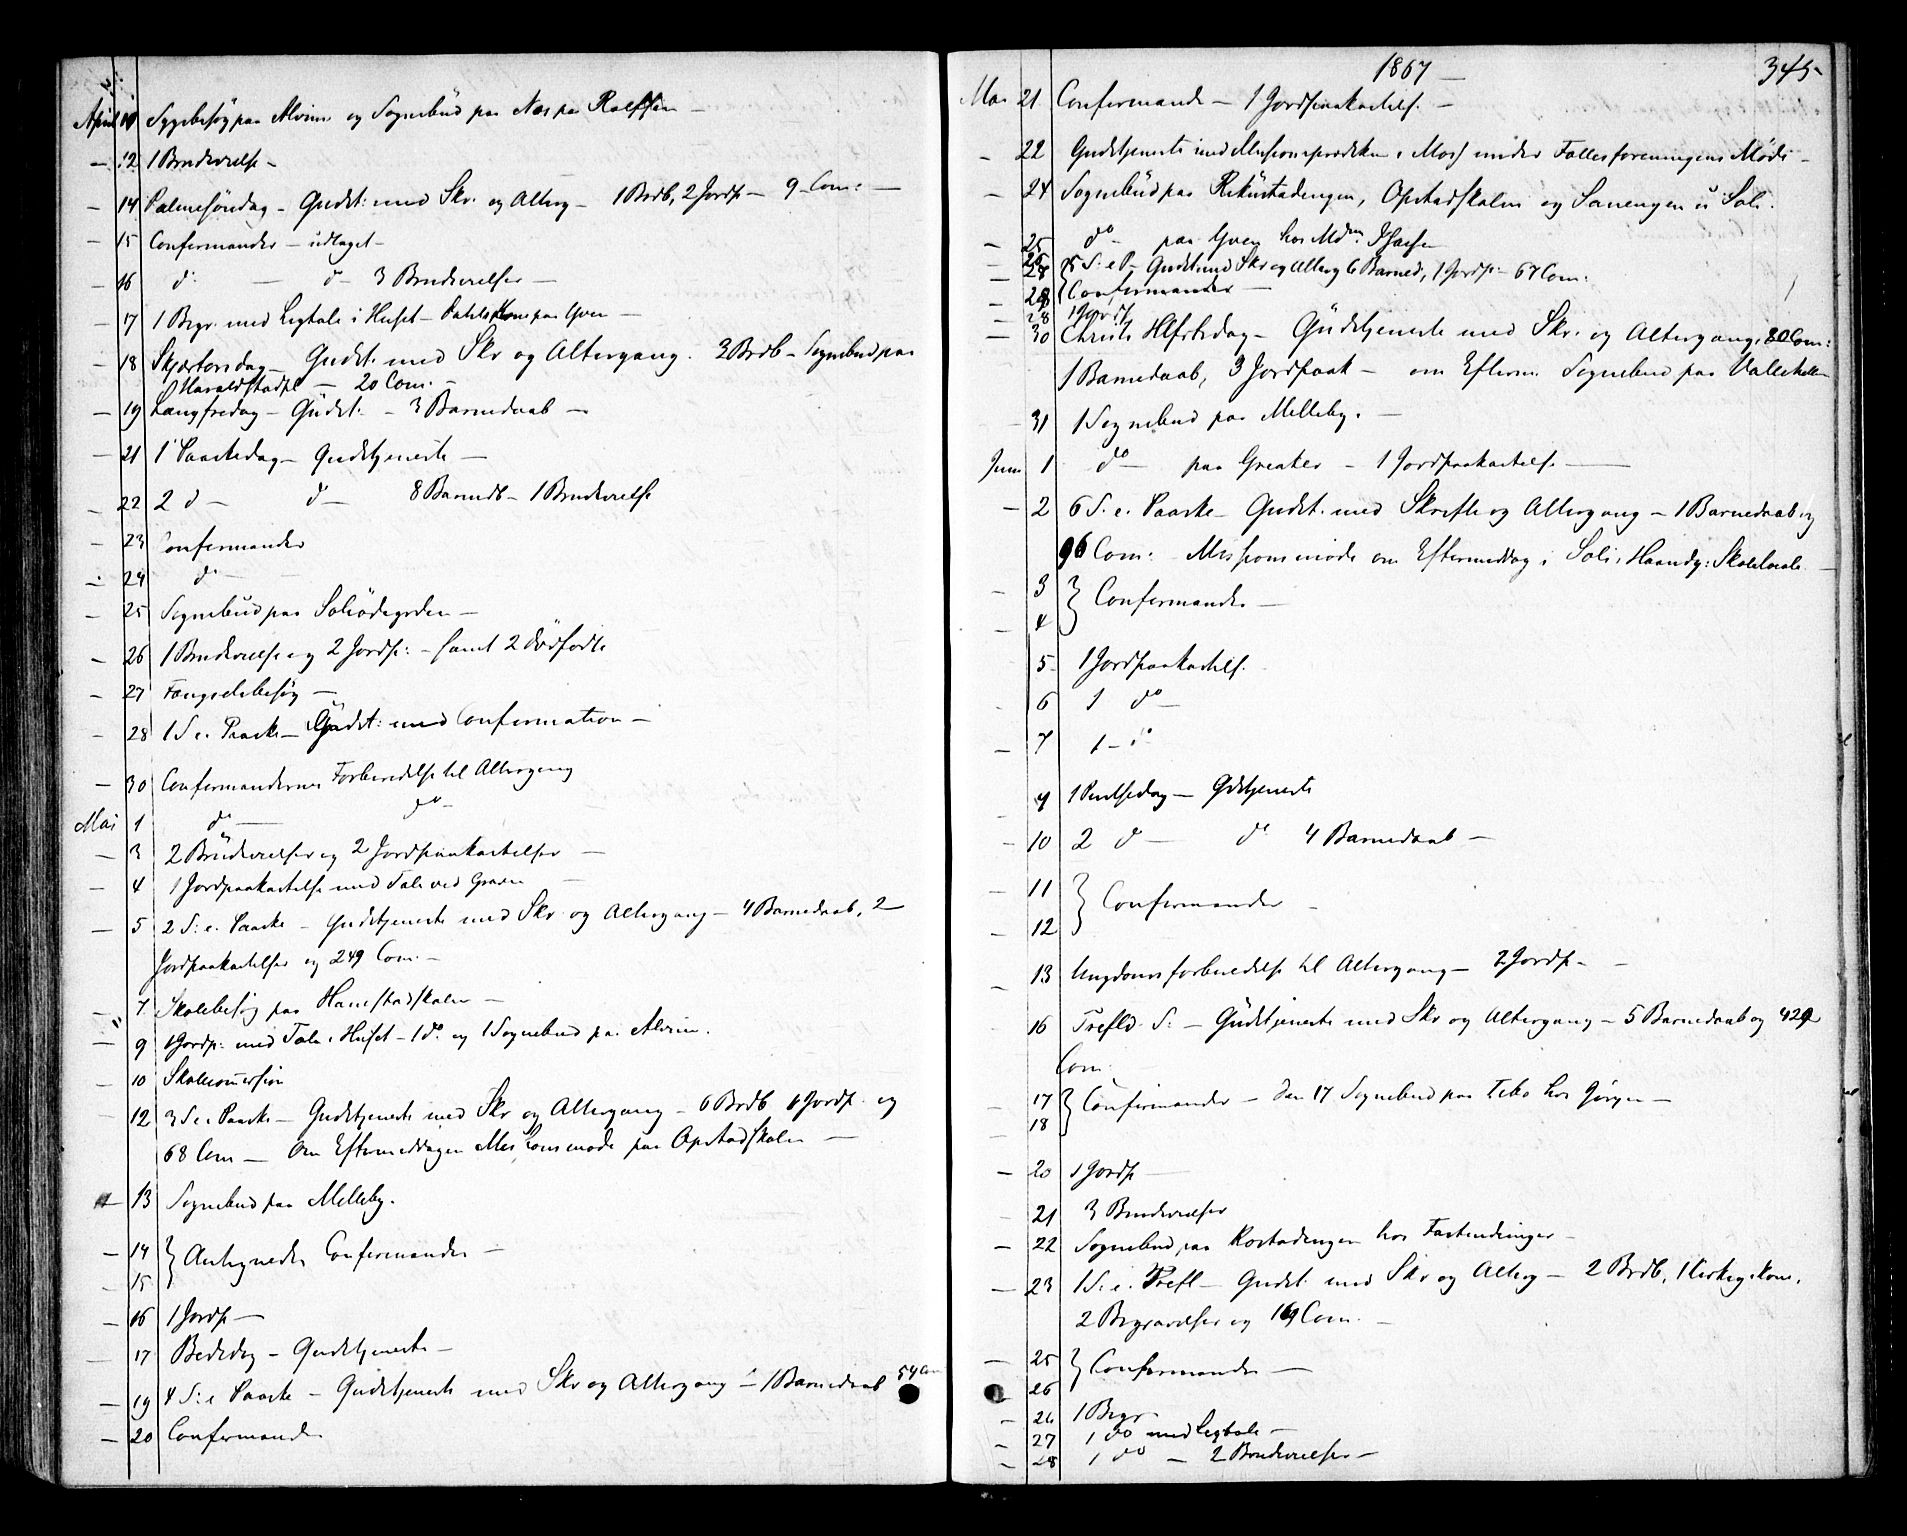 April 11 Sygebesøg paa Alvim og Sognebud paa Næs paa Rolfsøen —
— 12 1 Brudevielse —
— 14 Palmesøndag — Gudst: med Skr. og Alterg — 1 Brdb, 2 Jordp — 9 Com: —
— 15 Confirmander — udlagt —
— 16 do — do 3 Brudevielser —
— 17 1 Begr. med Ligtale i Huset — paa Yven —
— 18 Skjærtorsdag — Gudst. med Skr og Altergang. 3 Brdb — Sognebud paa
Haraldstadpl — 20 Com. —
— 19 Langfredag — Gudst: — 3 Barnedaab —
— 21 1 Paaskedag — Gudstjeneste —
— 22 2 d — do — 8 Barnedb — 1 Brudevielse
— 23 Confirmander
— 24 do —
— 25 Sognebud paa Soliødegrden —
— 26 1 Brudevielse og 2 Jordp: — samt 2 dødfødte
— 27 Fængselsbesøg —
— 28 1 S e. Paaske — Gudst: med Confirmation —
— 30 Confirmandernes Forberedelse til Altergang
Mai 1 do — do —
— 3 2 Brudevielser og 2 Jordpaakastelser —
— 4 1 Jordpaakastelse med Tale ved Graven —
— 5 2 S: e. Paaske — Gudstjeneste med Skr og Altergang — 4 Barnedaab, 2
Jordpaakastelser og 249 Com. —
— 7 Skolebesøg paa Hanestadskolen —
— 9 1 Jordp: med Tale i Huset — 1 do. og 1 Sognebud paa Alvim.
— 10 Skolecommission
— 12 3 S e. Paaske — Gudstjeneste med Skr og Altergang — 6 Brdb 6 Jordp. og
68 Com — Om Eftermiddagen Missionsmøde paa Opstadskolen —
— 13 Sognebud paa Melleby.
— 14 } Antegnede Confirmander —
— 15
— 16 1 Jordp —
— 17 Bededag — Gudstjeneste —
— 19 4 S: e Paaske — Gudstjeneste med Skr og Altergang — 1 Barnedaab 54 Com
— 20 Confirmander
1867 — 345
Mai 21 Confirmander — 1 Jordpaakastels. —
— 22 Gudstjeneste med Missionsprædiken i Moss under Fællesforeningens Møde —
— 24 Sognebud paa Opstadskolen og i Soli.
— 25 do — paa Yven hos Mdm. Isachsen
— 26 5 S: e P — Gudst med Skr og Alterg 6 Barned, 1 Jordp: — 67 Com:
— 28 } Confirmander —
— 28 1 Jordp
— 30 Christi Hlfrtsdag — Gudstjeneste med Skr. og Altergang, 80 Com:
1 Barnedaab, 3 Jordpaak — om Efterm. Sognebud paa Valleskollen
31 1 Sognebud paa Melleby. —
Juni 1 do — paa Greaker — 1 Jordpaakastelse —
— 2 6 S. e. Paaske — Gudst. med Skrifte og Altergang — 1 Barnedaab og
96 Com: — Missionsmøde om Eftermiddag i Soli Skolelocale —
— 3 } Confirmander —
— 4
5 1 Jordpaakastels.
6 1 do —
— 7 1 — do
— 9 1 Pintsedag — Gdstjeneste
— 10 2 d — do 4 Barnedaab —
— 11 } Confirmander —
12
— 13 Ungdomsforberedelse til Altergang — 2 Jordp — —
16 Trefld. S: — Gudstjeneste med Skr og Altergang — 5 Barnedaab og 429
Com.
— 17 } Confirmander — den 17 Sognebud paa hos Jørgen —
— 18
— 20 1 Jordp —
21 3 Brudevielser
— 22 Sognebud paa hos —
— 23 1 S. e. Trefl — Gudst. med Skr og Alterg — 2 Brdb, 1 Kirkegskom.
2 Begravelser og 169 Com. —
— 25 } Confirmander —
— 26
— 26 1 Begr.
— 27 1 do med Ligtale —
— 28 1 do — 2 Brudevielser —